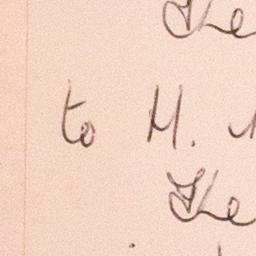 The
to M.
The